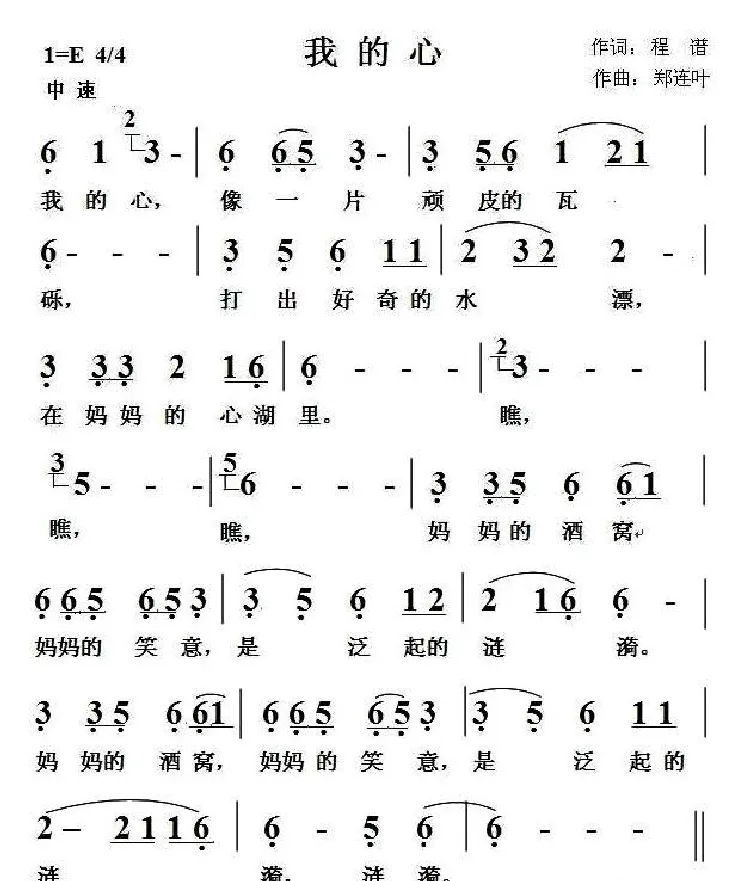 1=E 4/4 我的心 作词：程 谱
中速 作曲：郑连叶
2
6 1 3 - | 6 6 5 3 - | 3 5 6 1 2 1 |
我 的 心， 像 一 片 顽 皮的 瓦
6 - - - | 3 5 6 1 1 | 2 3 2 2 - |
砾， 打 出 好 奇 的 水 漂，
2
3 3 3 2 1 6 | 6 - - - | 3 - - - |
在 妈 妈 的 心 湖 里。 瞧，
3 5
5 - - - | 6 - - - | 3 3 5 6 6 1 |
瞧， 瞧， 妈 妈 的 酒 窝
6 6 5 6 5 3 | 3 5 6 1 2 | 2 1 6 6 - |
妈妈的 笑 意，是 泛 起的 涟 漪。
3 3 5 6 6 1 | 6 6 5 6 5 3 | 3 5 6 1 1 |
妈 妈的 酒 窝，妈妈 的 笑 意，是 泛 起 的
2 - 2 1 1 6 | 6 - 5 6 | 6 - - - ||
涟 漪， 涟 漪。